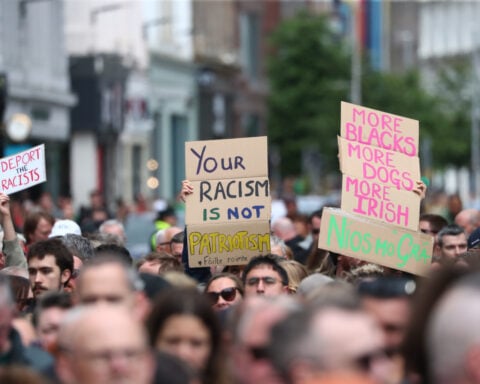 DEPORT
THE
RACISTS
YOUR
RACISM
IS NOT
PATRIOTISM
♥ Fáilte romhat
MORE
BLACKS
MORE
DOGS
MORE
IRISH
Níos Mó Grá